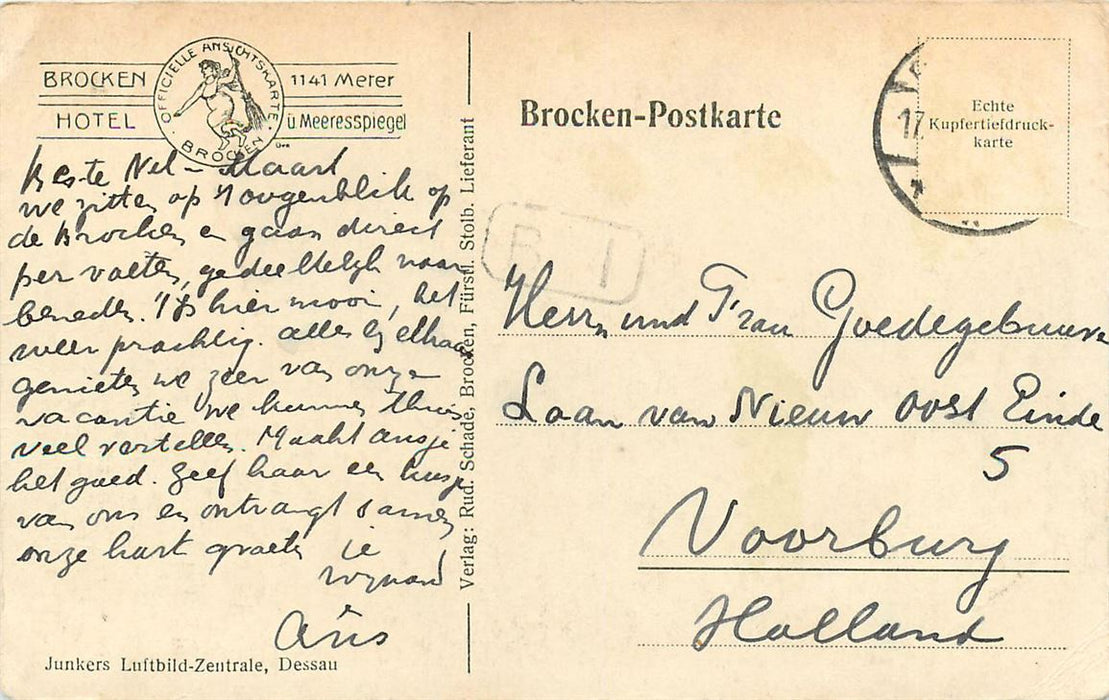 BROCKEN
HOTEL
OFFICIELLE ANSICHTSKARTE
BROCKEN
1141 Meter
ü Meeresspiegel
Beste Nel – Maart
we zitten op 't oogenblik op
de Brocken en gaan direct
per voeten, gedeeltelijk naar
beneden. 't Is hier mooi, het
weer prachtig. Alles bij elkaar
genieten we zeer van onze
vacantie. We kunnen thuis
veel vertellen. Maakt Ansje
het goed. Geef haar een kusje
van ons en ontvangt samen
onze hart groeten
Wynand
Verlag: Rud. Schade, Brocken, Fürstl. Stolb. Lieferant
Junkers Luftbild-Zentrale, Dessau
Brocken-Postkarte
Echte
Kupfertiefdruck-
karte
17
B I
Herrn und Frau Goedegebuure
Laan van Nieuw Oost Einde
5
Voorburg
Holland